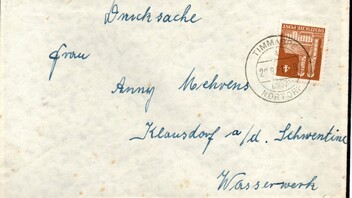 Drucksache
Frau
Anny Mehrens
Klausdorf a/d. Schwentine
Wasserwerk
DEUTSCHE POST
4